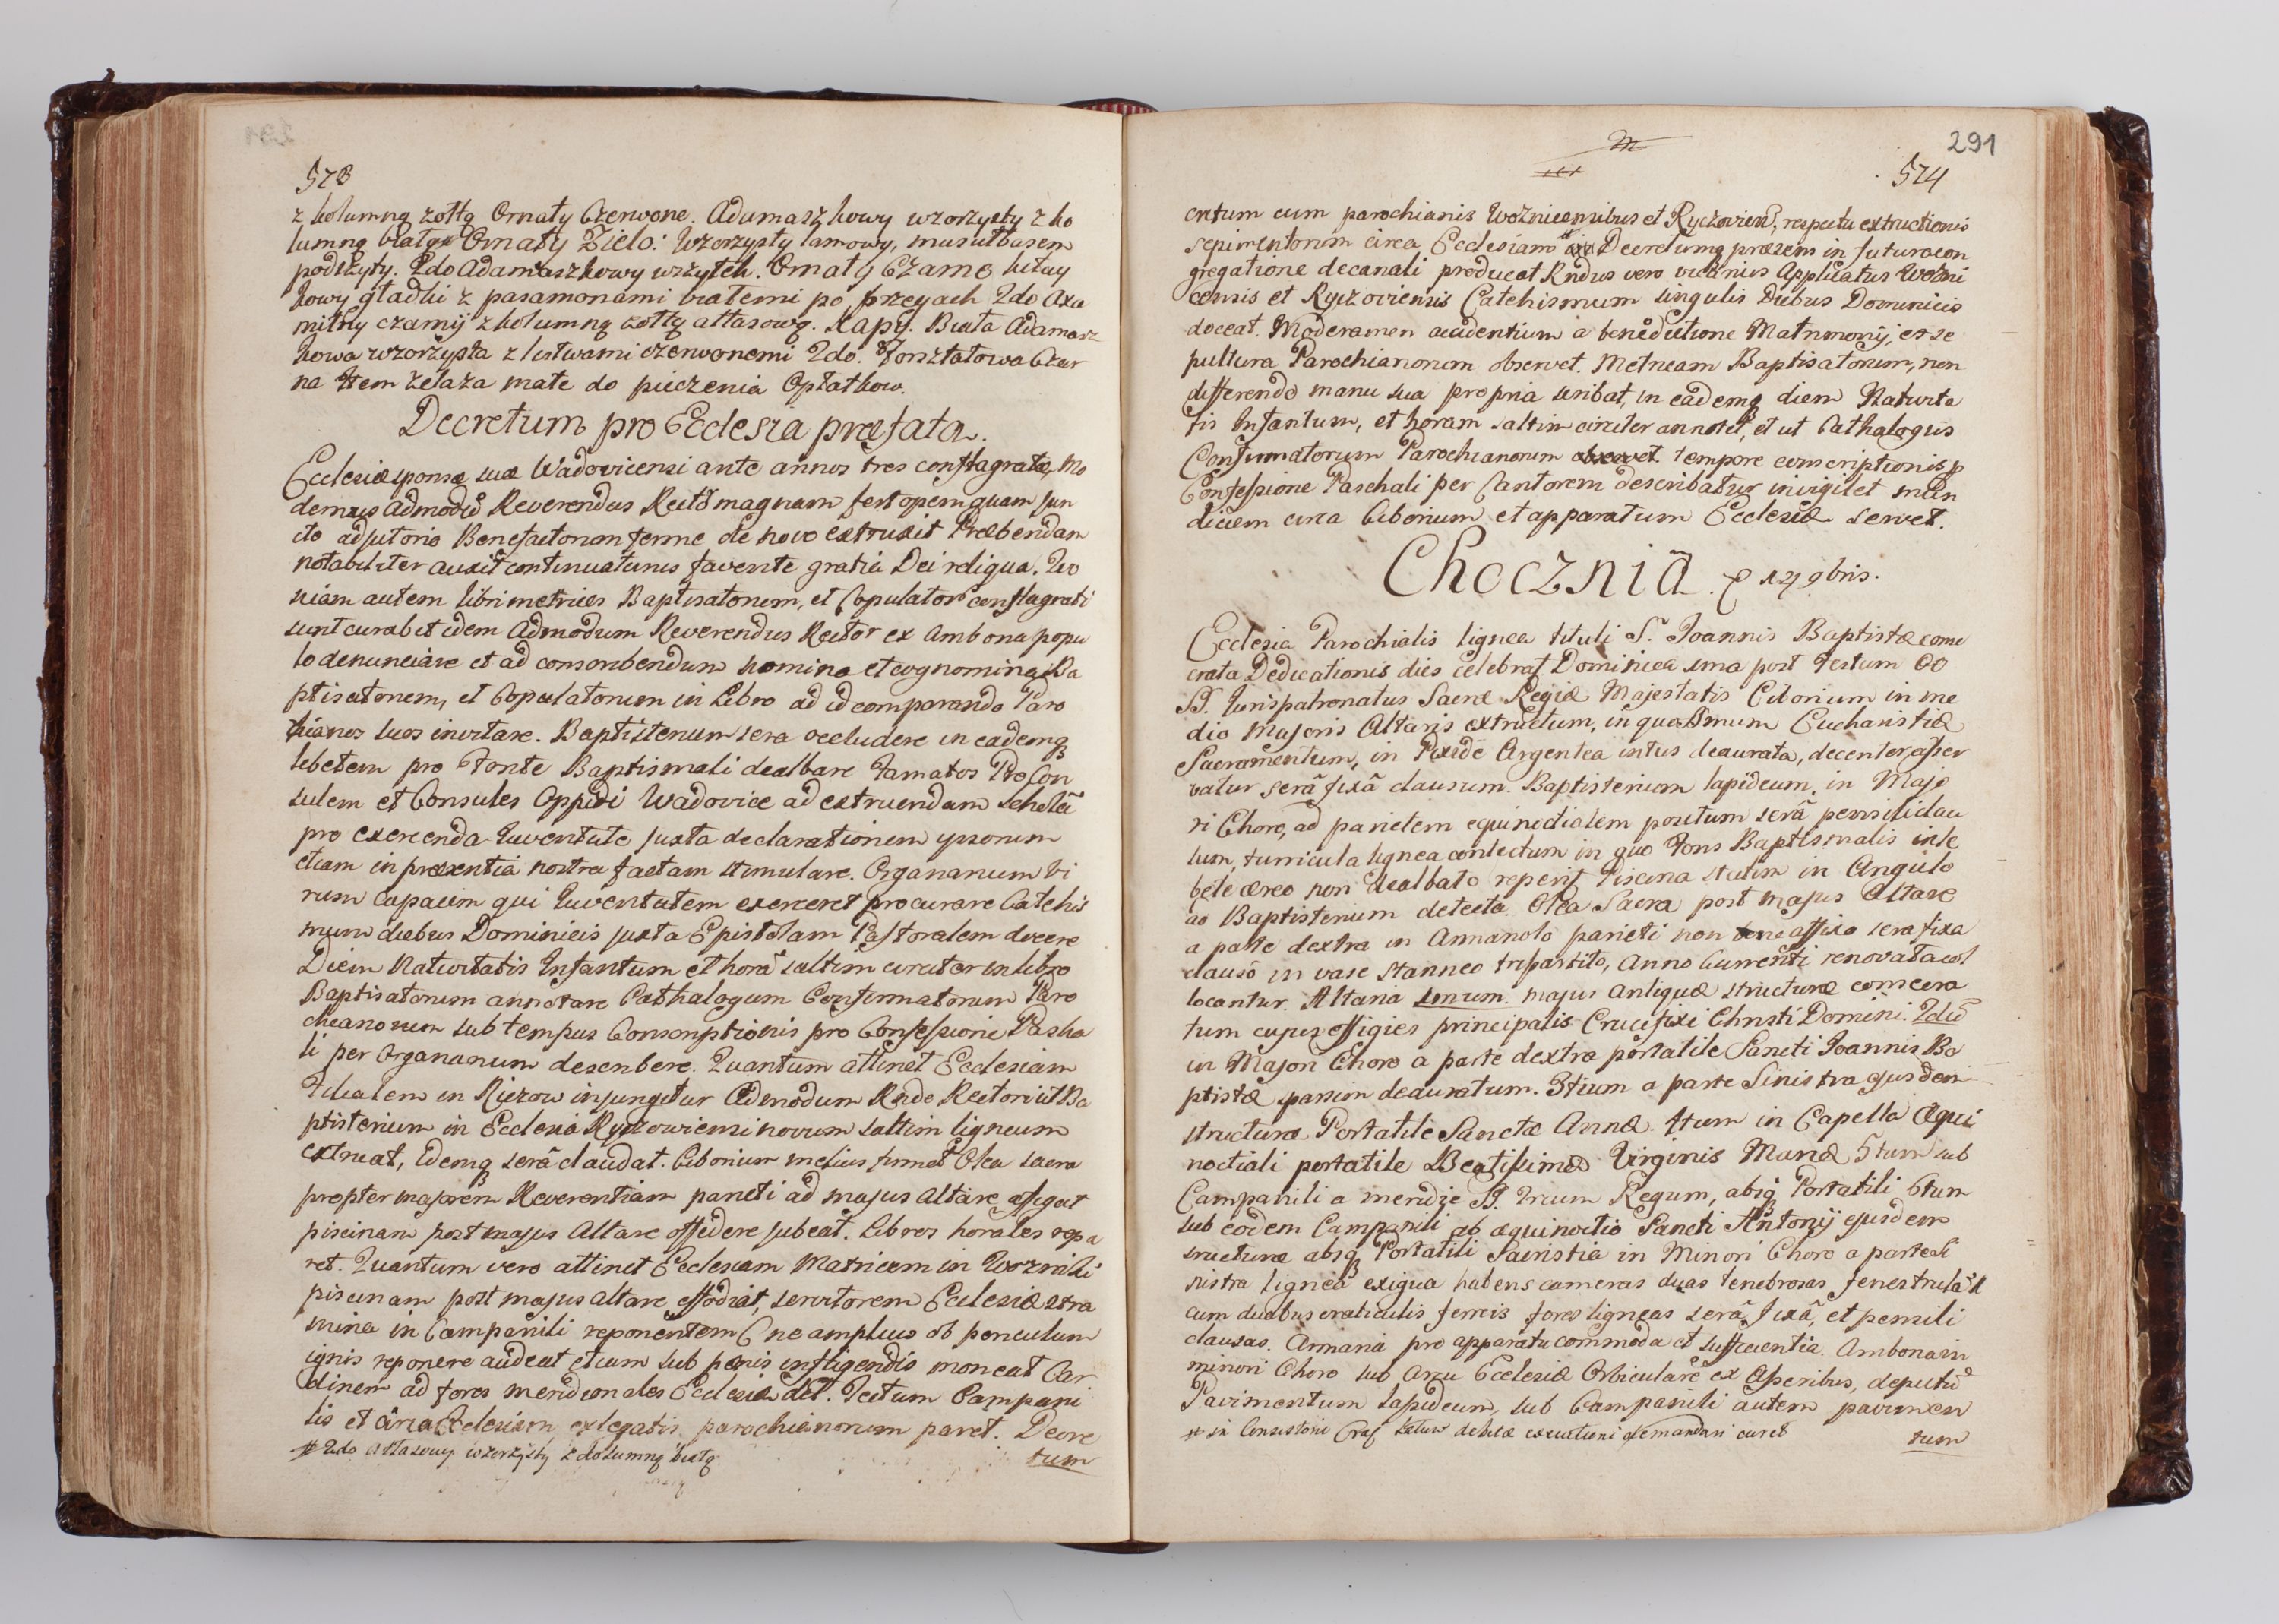 573
z kolumną zołtą Ornaty Czerwone. Adamaszkowy wzorzysty z ko
lumną białą # Ornaty Zielo: Wzorzysty lamowy, musułbasem
podszyty. 2do Adamaszkowy wszytek. Ornaty Czarne kitay
kowy gładki z pasamonami białemi po przegach 2do Axa
mitny czarnÿ z kolumną zołtą atłasową. Kapy. Biała Adamasz
kowa wzorzysta z listwami czerwonemi 2do. Forsztatowa Czar
na Item Zelaza małe do pieczenia Opłatkow.
Decretum pro Ecclesia præfata.
Ecclesiæ sponsæ suæ Wadovicensi ante annos tres conflagratæ, Mo
dernus Admodũ Reverendus Rector magnam fert opem quam jun
cto adjutorio Benefactorum ferme de novo extruxit Præbendam
notabiliter auxit continuaturus favente gratia Dei reliqua. Quo
niam autem libri metrices Baptisatorum, et Copulator conflagrati
sunt curabit idem Admodum Reverendus Rector ex Ambona popu
lo denunciare et ad conscribendum nomina et cognomina Ba
ptisatorum, et Copulatorum in Libro ad id comparando Paro
chianos suos invitare. Baptisterium sera occludere in eademq
lebetem pro Fonte Baptismali dealbare Famatos ProCon
sulem et Consules Oppidi Wadovice ad extruendam Scholã
pro exercenda Iuventute juxta declarationem ipsorum
etiam in præsentia nostra factam stimulare. Organarium Vi
rum capacem qui Iuventutem exerceret procurare Catechis
mum diebus Dominicis juxta Epistolam Pastoralem docere
Diem Nativitatis Infantum et horã saltim circiter in libro
Baptisatorum annotare Cathalogum Confirmatorum Paro
chianorum sub tempus Conscriptionis pro Confessione Pascha
li per Organarium describere. Quantum attinet Ecclesiam
Filialem in Ryczow injungitur Admodum Rndo Rectori ut Ba
ptisterium in Ecclesia Ryczowiensi novum saltim ligneum
extruat, idemq serâ claudat. Ciborium melius firmet Olea sacra
propter majorem Reverentiam parieti ad majus Altare affigat
piscinam post majus Altare effodere jubeat. Libros horales repa
ret. Quantum vero attinet Ecclesiam Matricem in Wozniki
piscinam post majus altare effodiat, servitorem Ecclesiæ stra
mina in Campanili reponentem ne amplius ob periculum
ignis reponere audeat etiam sub pænis infligendis moneat Car
dinem ad fores meridionales Ecclesiæ det. Tectum Campani
lis et circa Ecclesiam ex legatis parochianorum paret. Decre
# 2do Atłasowy wzorzysty z kolumną białą
tum
291
574
cretum cum parochianis Woznicensibus et Ryczoviens, respectu extructionis
sepimentorum circa Ecclesiam # Decretumq præsens in futura con
gregatione decanali producat Rndus vero vicarius Applicatus Wozni
censis et Ryczoviensis Catechismum singulis Diebus Dominicis
doceat. Moderamen accidentium a benedictione Matrimonij, et se
pultura Parochianorum observet. Metricam Baptisatorum, non
differendo manu sua propria scribat, in eâdemq diem Nativita
tis Infantum, et horam saltim circiter annotet, et ut Cathalogus
Confirmatorum Parochianorum tempore conscriptionis p
Confessione Paschali per Cantorem describatur invigilet mun
diciem circa Ciborium et apparatum Ecclesiæ servet.
Choczniã D 12 9bris.
Ecclesia Parochialis lignea tituli S. Joannis Baptistæ conse
crata Dedicationis dies celebrat Dominica ima post Festum OO
SS. Iurispatronatus Sacræ Regiæ Majestatis Ciborium in me
dio Majoris Altaris extructum, in quo SSmum Eucharistiæ
Sacramentum, in Pixide Argentea intus deaurata, decenter asser
vatur serâ fixâ clausum. Baptisterium lapideum, in Majo
ri Choro, ad parietem equinoctialem positum serâ pensili clau
sum, turricula lignea contectum in quo Fons Baptismalis in le
bete æreo non dealbato reperit Piscina statim in Angulo
ad Baptisterium detecta. Olea Sacra post majus Altare
a parte dextra in Armariolo parieti non bene affixo sera fixa
clauso in vase stanneo tripartito, Anno Currenti renovata col
locantur. Altaria 1mum majus Antiquæ structuræ consecra
tum cujus effigies principalis Crucifixi Christi Domini. 2dũ
in Majori Choro a parte dextra portatile Sancti Joannis Ba
ptistæ passim deauratum. 3tium a parte Sinistra ejusdem
structuræ Portatile Sanctæ Annæ. 4tum in Capella Æqui
noctiali portatile Beatissimæ Virginis Mariæ 5tum sub
Campanili a meridie SS. Trium Regum, absq Portatili 6tum
sub eodem Campanili ab æquinoctio Sancti Antonij ejusdem
structuræ absq Portatili Sacristia in Minori Choro a parte si
nistra lignea exigua habens cameras duas tenebrosas fenestrulas 2
cum duabus craticulis ferreis fores ligneas serâ fixâ, et pensili
clausas. Armaria pro apparatu commoda et sufficientia. Ambona in
minori Choro sub Arcu Ecclesiæ Orbiculare ex Asseribus, depictũ
Pavimentum lapideum, sub Campanili autem pavimen
# in Consistorio Latum debitæ executioni demandari curet
tum